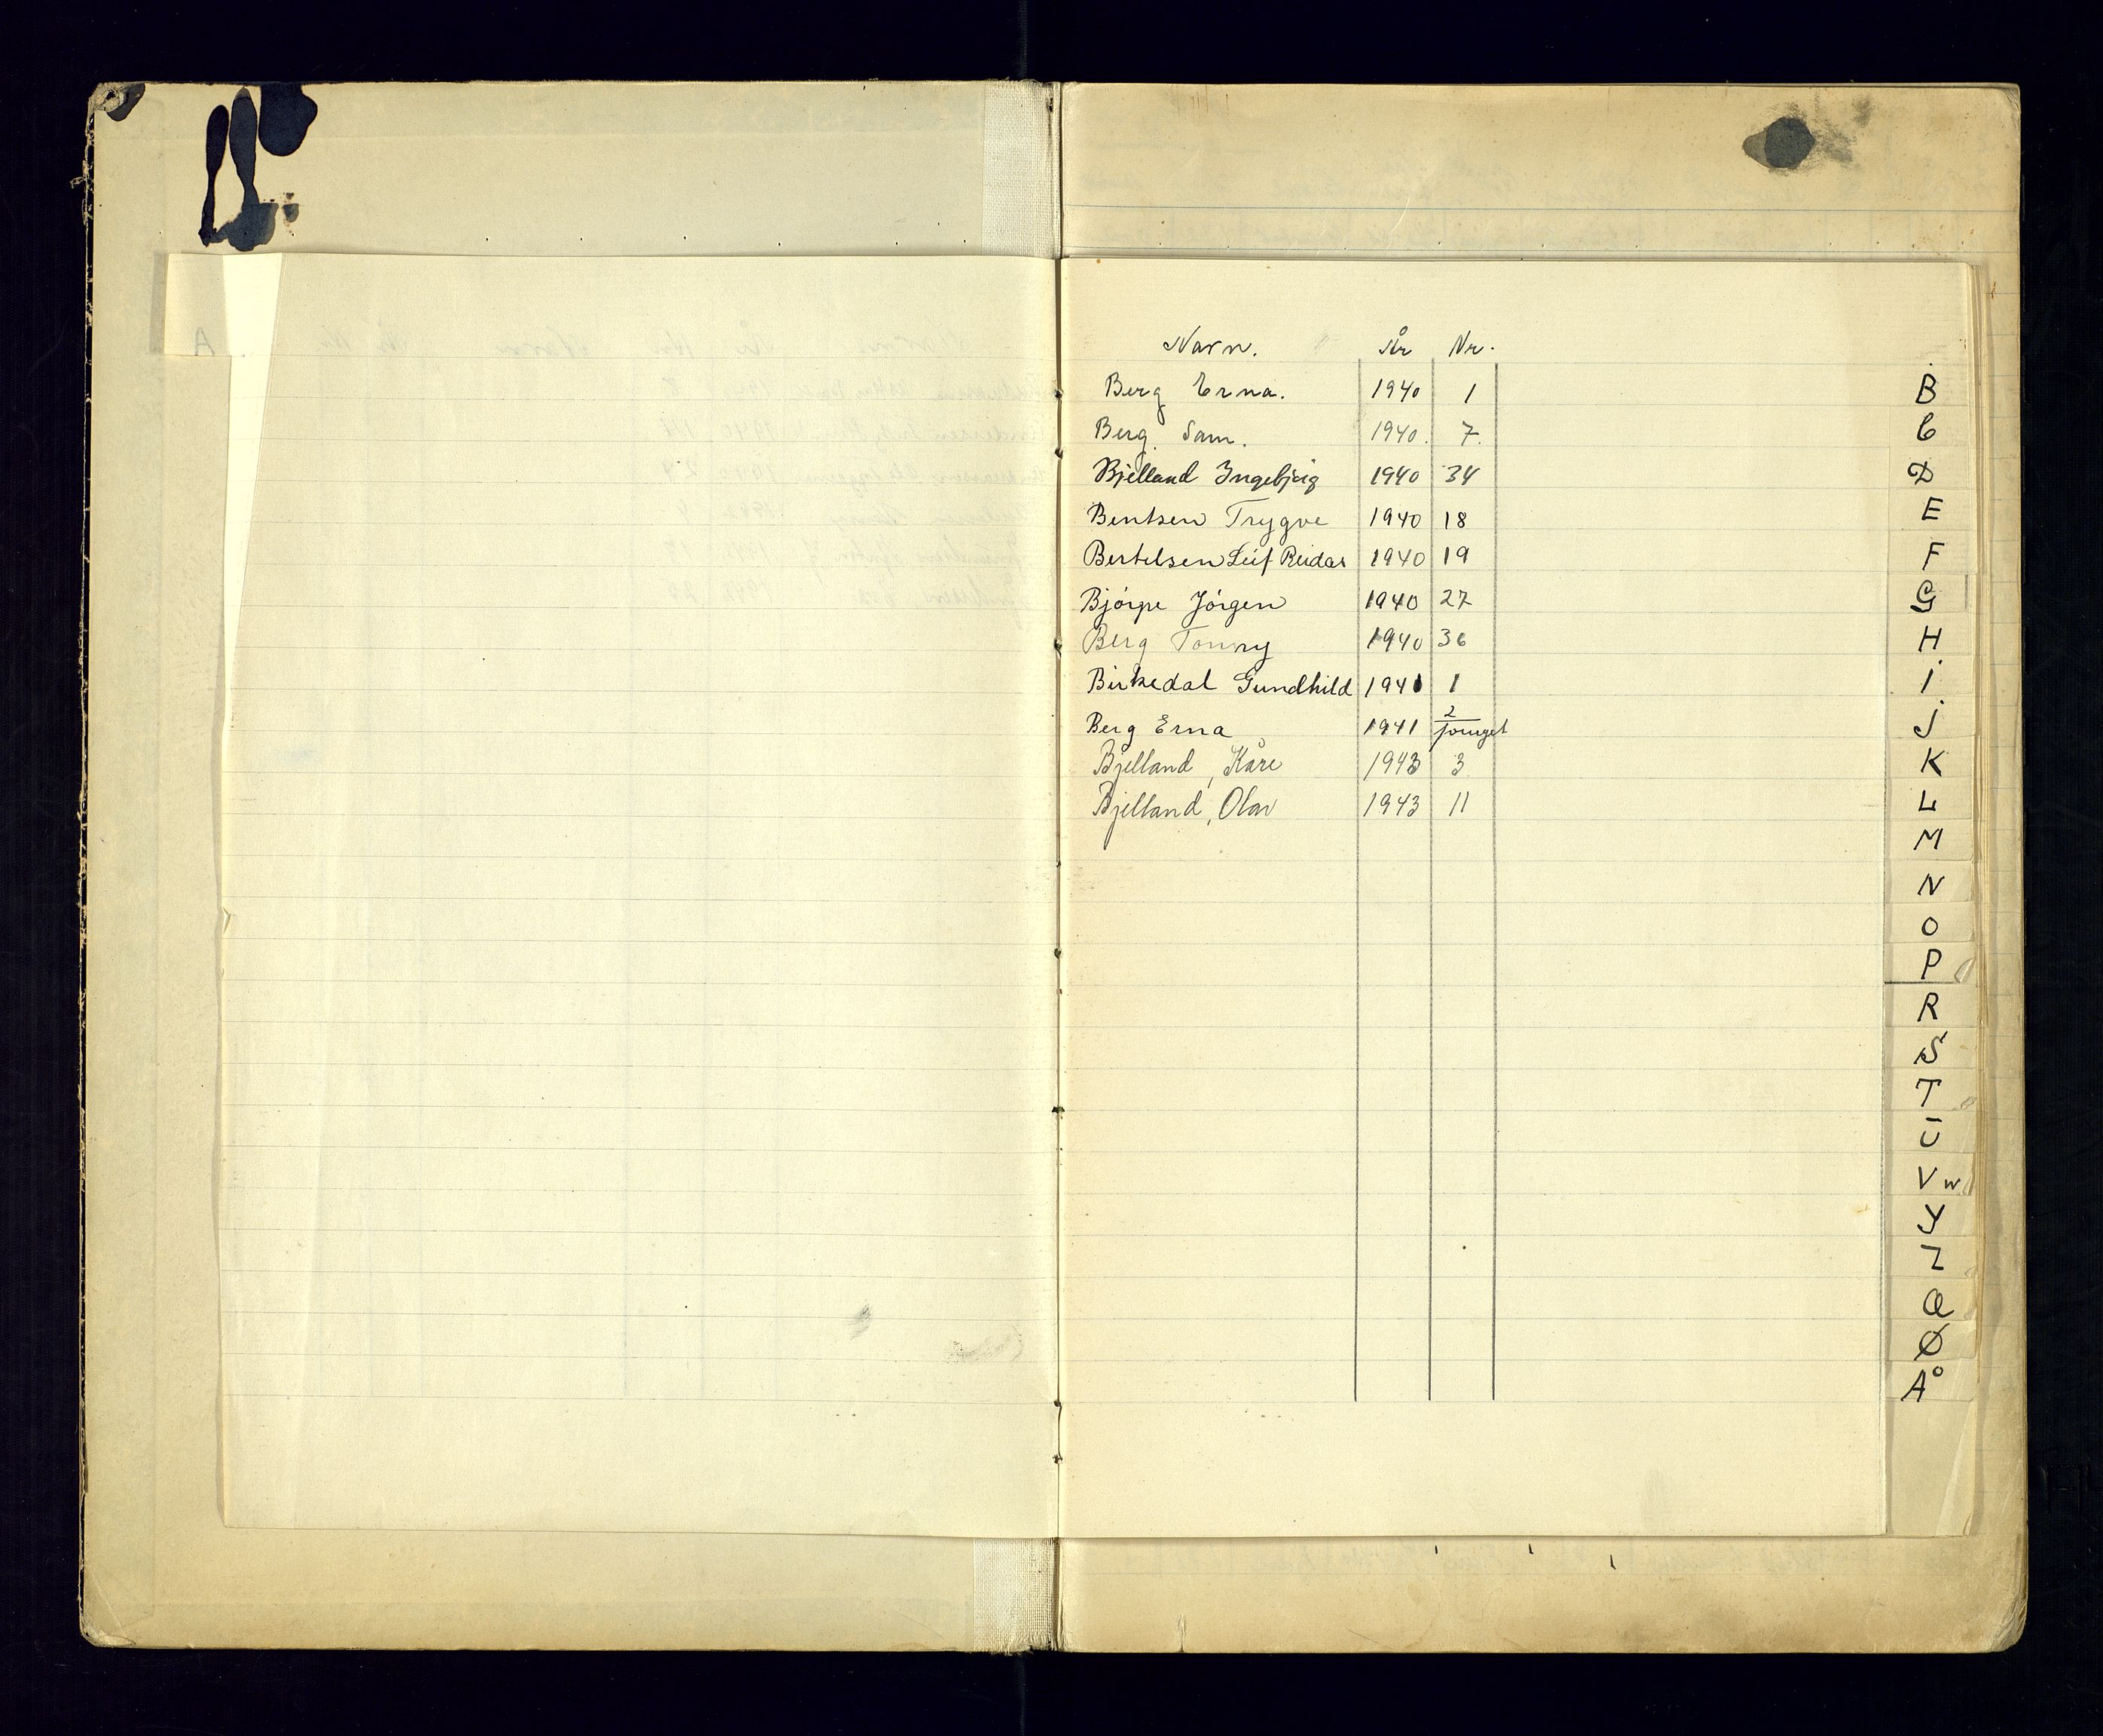 Navn. År Nr.
Berg Erna. 1940 1
Berg Sam. 1940. 7.
Bjelland Ingebjørg 1940 34
Bentsen Trygve 1940 18
Bertelsen Leif Reidar 1940 19
Bjórpe Jórgen 1940 27
Berg Tonny 1940 36
Birkedal Gundhild 1941 1
Berg Erna 1941 2
Bjelland, Kåre 1943 3
Bjelland, Olav 1943 11
B
C
D
E
F
G
H
I
J
K
L
M
N
O
P
R
S
T
U
V W
Y
Z
Æ
Ø
Å